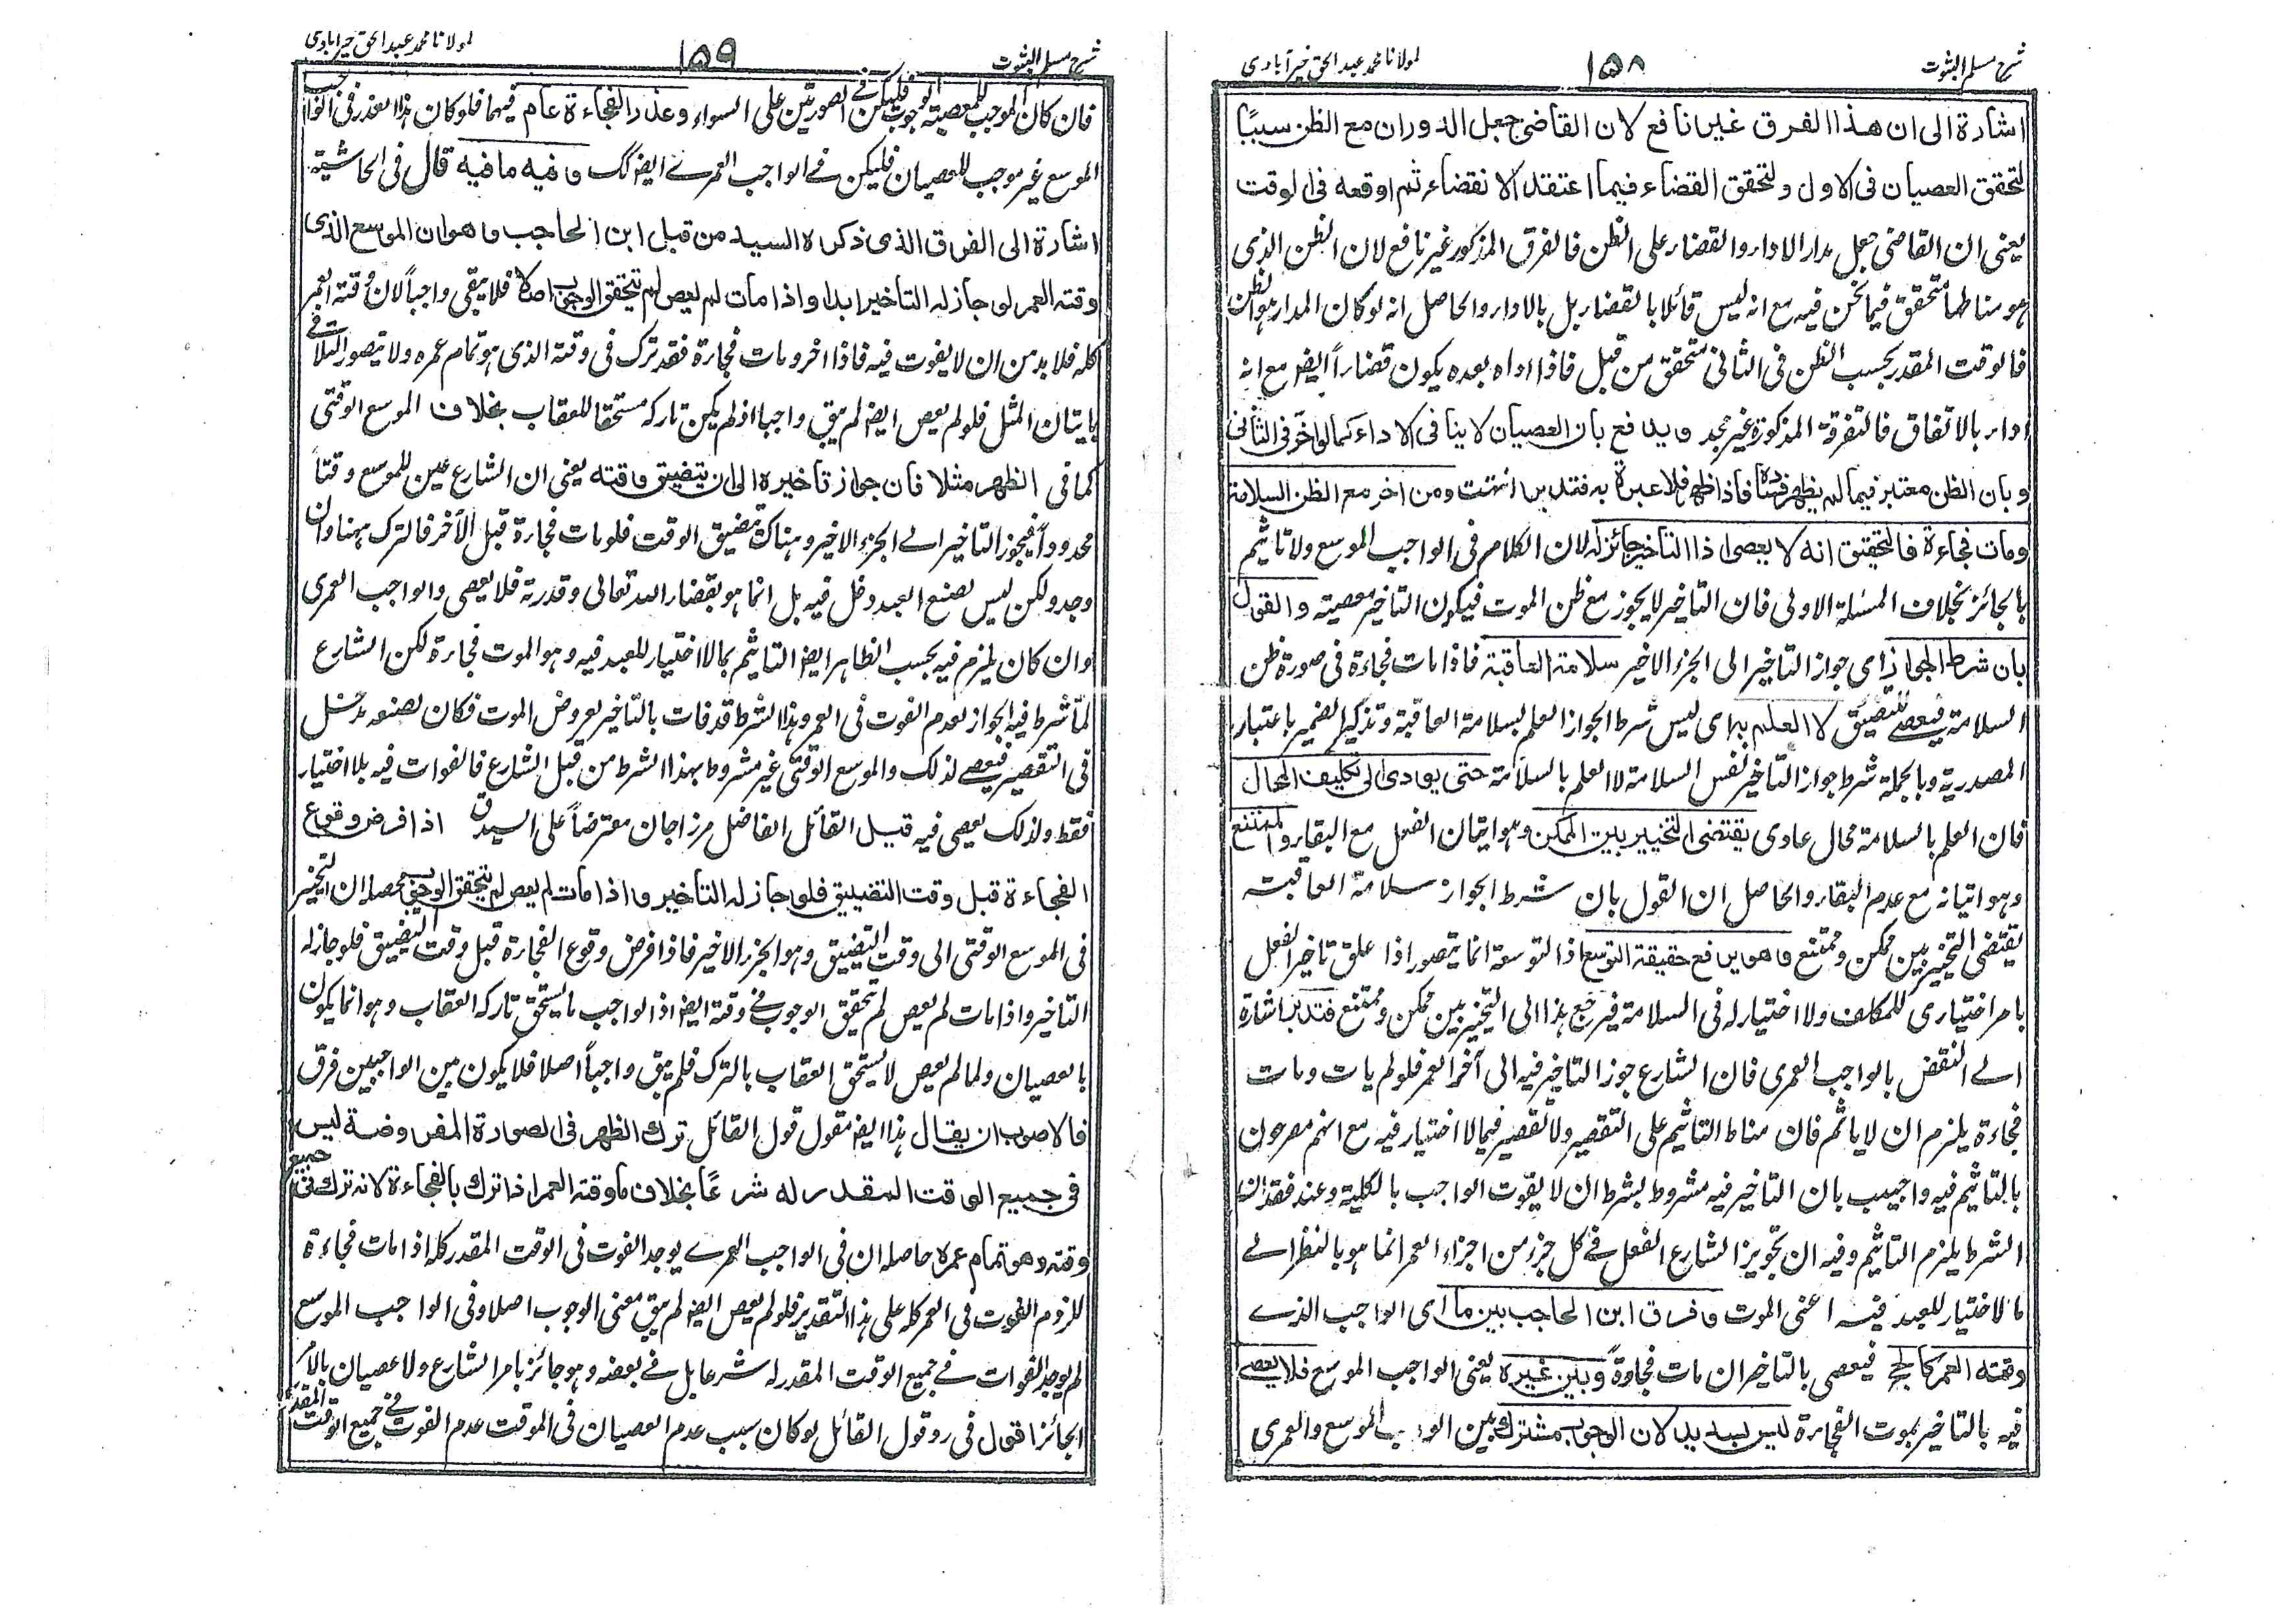 شرح مسلم الثبوت
١٥٨
لمولانا محمد عبد الحق خيرآبادى
اشارة الى ان هذا الفرق غير نافع لان القاضى جعل الدوران مع الظن سببًا
لتحقق العصيان فى الاول ولتحقق القضاء فيما اعتقد الانقضاء ثم اوقعه فى الوقت
يعنى ان القاضى جعل مدار الاداء والقضاء على الظن فالفرق المذكور غير نافع لان الظن الذى
هو مناطهما متحقق فيما نحن فيه مع انه ليس قائلا بالقضاء بل بالاداء والحاصل انه لو كان المدار هو الظن
فالوقت المقدر بحسب الظن فى الثانى متحقق من قبل فاذا اداه بعده يكون قضاءً ايضا مع انه
اداء بالاتفاق فالتفرقة المذكورة غير مجد ويدفع بان العصيان لا ينافى الاداء كما لو اخر فى الثانى
وبان الظن معتبر فيما لم يظهر فساده فاذا ظهر فلا عبرة به فتدبر انتهت ومن اخر مع الظن السلامة
ومات فجاءة فالتحقيق انه لا يعصى اذ التاخير جائز له لان الكلام فى الواجب الموسع ولا تاثيم
بالجائز بخلاف المسئلة الاولى فان التاخير لا يجوز مع ظن الموت فيكون التاخير معصية والقول
بان شرط الجواز اى جواز التاخير الى الجزء الاخير سلامة العاقبة فاذا مات فجاءة فى صورة ظن
السلامة فيعصى للتضيق لا العلم به اى ليس شرط الجواز العلم بسلامة العاقبة وتذكير الضمير باعتبار
المصدرية وبالجملة شرط جواز التاخير نفس السلامة لا العلم بالسلامة حتى يودى الى تكليف المحال
فان العلم بالسلامة محال عادى يقتضى التخيير بين الممكن وهو اتيان الفعل مع البقاء والممتنع
وهو اتيانه مع عدم البقاء والحاصل ان القول بان شرط الجواز سلامة العاقبة
يقتضى التخيير بين ممكن وممتنع وهو يرفع حقيقة التوسع اذ التوسعة انما يتصور اذا علق تاخير الفعل
بامر اختيارى للمكلف ولا اختيار له فى السلامة فيرجع هذا الى التخيير بين ممكن وممتنع فتدبر اشارة
الى النقض بالواجب العمرى فان الشارع جوز التاخير فيه الى آخر العمر فلو لم يات ومات
فجاءة يلزم ان لا ياثم فان مناط التاثيم على التقصير ولا تقصير فيما لا اختيار فيه مع انهم مصرحون
بالتاثيم فيه واجيب بان التاخير فيه مشروط بشرط ان لا يفوت الواجب بالكلية وعند فقدان
الشرط يلزم التاثيم وفيه ان تجويز الشارع الفعل فى كل جزء من اجزاء العمر انما هو بالنظر الى
ما لا اختيار للعبد فيه اعنى الموت وفرق ابن الحاجب بين ما اى الواجب الذى
وقته العمر كالحج فيعصى بالتاخير ان مات فجاءةً وبين غيره يعنى الواجب الموسع فلا يعصى
فيه بالتاخير بموت الفجاءة ليس بسديد لان الوجوب مشترك بين الموسع والعمرى
شرح مسلم الثبوت
١٥٩
لمولانا محمد عبد الحق خيرآبادى
فان كان الموجب للمعصية الوجوب فليكن فى الصورتين على السواء وعذر الفجاءة عام فيهما فلو كان هذا العذر فى الواجب
الموسع غير موجب للعصيان فليكن فى الواجب العمرى ايضا كك وفيه ما فيه قال فى الحاشية
اشارة الى الفرق الذى ذكره السيد من قبل ابن الحاجب وهو ان الموسع الذى
وقته العمر لو جاز له التاخير ابدا واذا مات لم يعص لم يتحقق الوجوب اصلا فلا يبقى واجباً لان وقته العمر
كله فلا بد من ان لا يفوت فيه فاذا اخر ومات فجاءة فقد ترك فى وقته الذى هو تمام عمره ولا يتصور التلافى
باتيان المثل فلو لم يعص ايضا لم يبق واجبا اذ لم يكن تاركه مستحقا للعقاب بخلاف الموسع الوقتى
كما فى الظهر مثلا فان جواز تاخيره الى ان يتضيق وقته يعنى ان الشارع عين للموسع وقتاً
محدوداً فيجوز التاخير الى الجزء الاخير وهناك تضيق الوقت فلو مات فجاءة قبل الآخر فالترك ههنا وان
وجد ولكن ليس لصنع العبد دخل فيه بل انما هو بقضاء الله تعالى وقدرته فلا يعصى والواجب العمرى
وان كان يلزم فيه بحسب الظاهر ايضا التاثيم بما لا اختيار للعبد فيه وهو الموت فجاءة لكن الشارع
لما شرط فيه الجواز بعدم الفوت فى العمر وهذا الشرط قد فات بالتاخير بعروض الموت فكان لصنعه دخل
فى التقصير فيعصى لذلك والموسع الوقتى غير مشروط بهذا الشرط من قبل الشارع فالفوات فيه بلا اختيار
فقط ولذلك يعصى فيه قيل القائل الفاضل مرزاجان معترضاً على السيد اذا فرض وقوع
الفجاءة قبل وقت التضييق فلو جاز له التاخير واذا مات لم يعص لم يتحقق الوجوب محصله ان التخيير
فى الموسع الوقتى الى وقت التضييق وهو الجزء الاخير فاذا فرض وقوع الفجاءة قبل وقت التضييق فلو جاز له
التاخير واذا مات لم يعص لم يتحقق الوجوب فى وقته ايضا اذ الواجب ما يستحق تاركه العقاب وهو انما يكون
بالعصيان ولما لم يعص لا يستحق العقاب بالترك فلم يبق واجباً اصلا فلا يكون بين الواجبين فرق
فالاصوب ان يقال هذا ايضا مقول قول القائل ترك الظهر فى الصورة المفروضة ليس
فى جميع الوقت المقدر له شرعًا بخلاف ما وقته العمر اذا ترك بالفجاءة لانه ترك فى جميع
وقته وهو تمام عمره حاصله ان فى الواجب العمرى يوجد الفوت فى الوقت المقدر كله اذا مات فجاءة
للزوم الفوت فى العمر كله على هذا التقدير فلو لم يعص ايضا لم يبق معنى الوجوب اصلا وفى الواجب الموسع
لم يوجد الفوات فى جميع الوقت المقدر له شرعا بل فى بعضه وهو جائز بامر الشارع ولا عصيان بالامر
الجائز اقول فى رد قول القائل لو كان سبب عدم العصيان فى الموقت عدم الفوت فى جميع الوقت المقدر